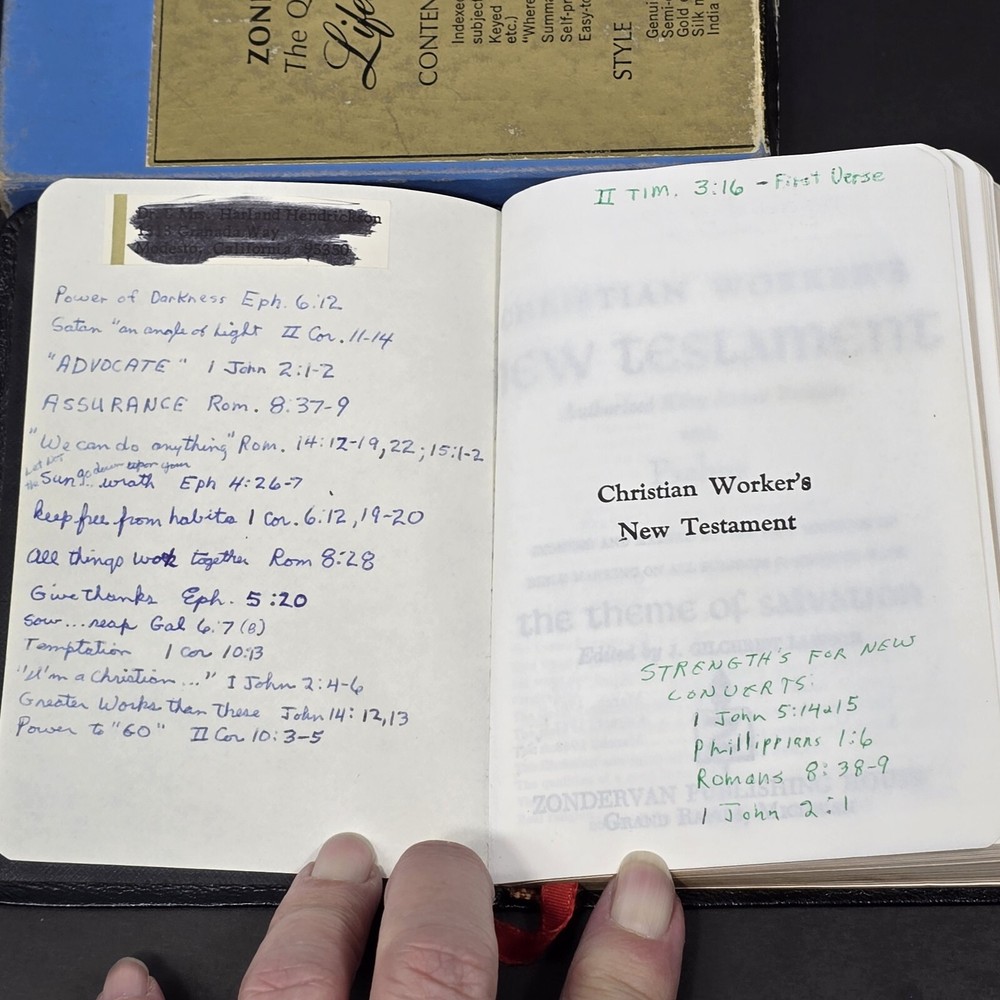 ZON
The Q
Life
CONTEN
Indexed
subject
Keyed
etc.)
"Where
Summa
Self-pr
Easy-to
STYLE
Genui
Semi-
Gold
Silk m
India
Mrs. Harland Hendrickson
Granada Way
Modesto, California 95350
Power of Darkness Eph. 6:12
Satan "an angle of Light II Cor. 11-14
"ADVOCATE" 1 John 2:1-2
ASSURANCE Rom. 8:37-9
"We can do anything" Rom. 14:12-19,22; 15:1-2
Let not the Sun go down upon your wrath Eph 4:26-7
keep free from habits 1 Cor. 6:12, 19-20
All things work together Rom 8:28
Give thanks Eph. 5:20
Sow...reap Gal 6:7 (8)
Temptation 1 Cor 10:13
"I'm a Christian..." I John 2:4-6
Greater Works than these John 14:12,13
Power to "GO" II Cor 10:3-5
II TIM. 3:16 - First Verse
CHRISTIAN WORKER'S
NEW TESTAMENT
Christian Worker's
New Testament
the theme of salvation
STRENGTH'S FOR NEW
CONVERTS:
1 John 5:14&15
Phillippians 1:6
Romans 8:38-9
1 John 2:1
ZONDERVAN PUBLISHING HOUSE